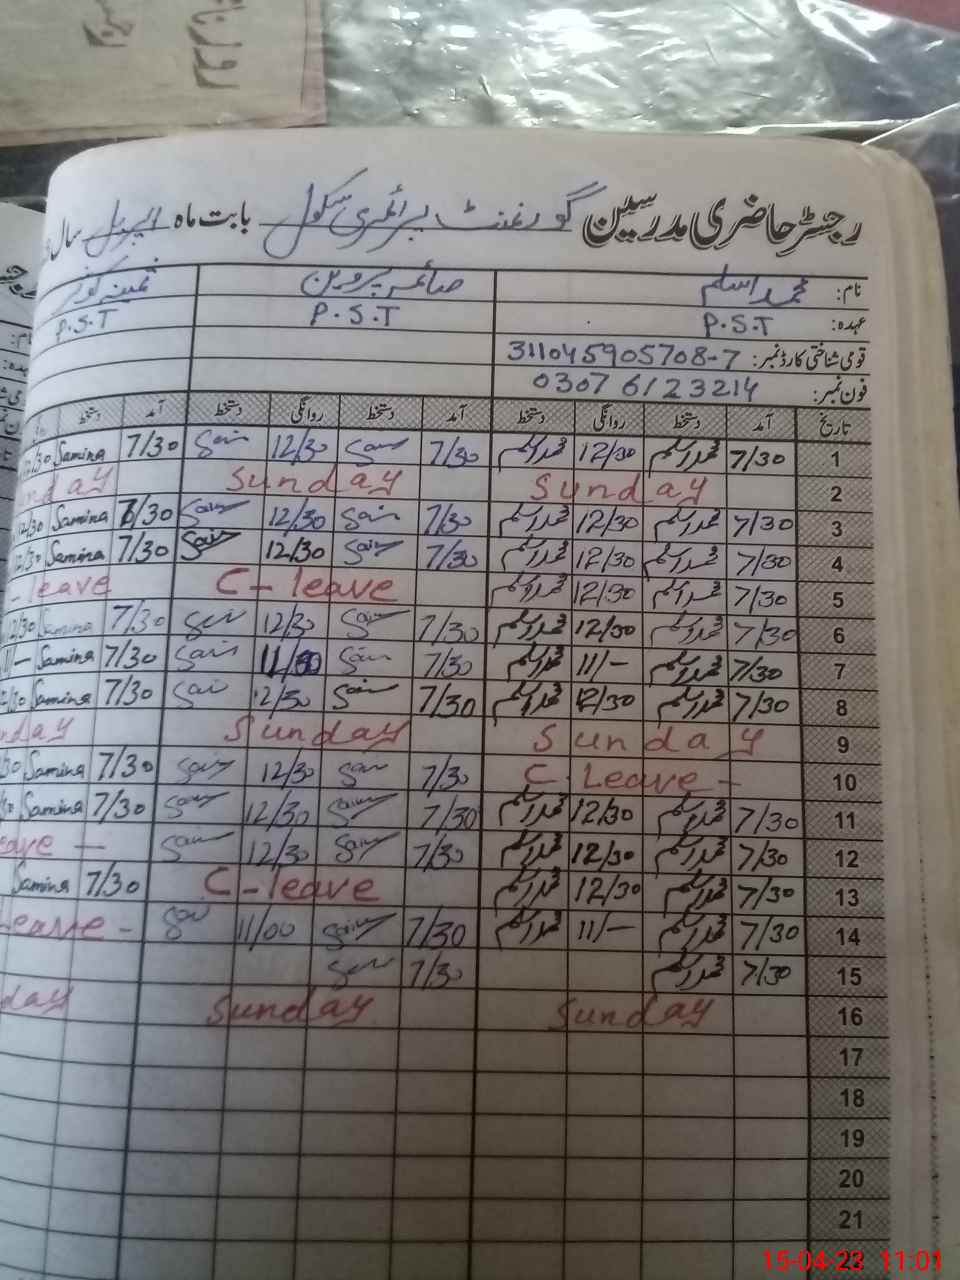 رجسٹرِ حاضری مدرسین گورنمنٹ پرائمری سکول بابت ماہ اپریل سال
نام: محمد اسلم صائمہ پروین ثمینہ کوثر
عہدہ: P.S.T P.S.T P.S.T
قومی شناختی کارڈ نمبر: 311045905708-7
فون نمبر: 0307 6123214
تاریخ آمد دستخط روانگی دستخط آمد دستخط روانگی دستخط آمد دستخط
1 7/30 محمد اسلم 12/30 محمد اسلم 7/30 Saim 12/30 Saim 7/30 Samina 12/30
2 Sunday Sunday
3 7/30 محمد اسلم 12/30 محمد اسلم 7/30 Saim 12/30 Saim 7/30 Samina 12/30
4 7/30 محمد اسلم 12/30 محمد اسلم 7/30 Saim 12/30 Saim 7/30 Samina 12/30
5 7/30 محمد اسلم 12/30 محمد اسلم C-leave -leave
6 7/30 محمد اسلم 12/30 محمد اسلم 7/30 Saim 12/30 Saim 7/30 Samina 12/30
7 7/30 محمد اسلم 11/- محمد اسلم 7/30 Saim 11/00 Saim 7/30 Samina 11/-
8 7/30 محمد اسلم 12/30 محمد اسلم 7/30 Saim 12/30 Saim 7/30 Samina 12/30
9 Sunday Sunday
10 C.Leave- 7/30 Saim 12/30 Saim 7/30 Samina
11 7/30 محمد اسلم 12/30 محمد اسلم 7/30 Saim 12/30 Saim 7/30 Samina
12 7/30 محمد اسلم 12/30 محمد اسلم 7/30 Saim 12/30 Saim
13 7/30 محمد اسلم 12/30 محمد اسلم C-leave 7/30 Samina
14 7/30 محمد اسلم 11/- محمد اسلم 7/30 Saim 11/00 Saim Leave-
15 7/30 محمد اسلم 7/30 Saim
16 Sunday Sunday
17
18
19
20
21
15-04-23 11:01